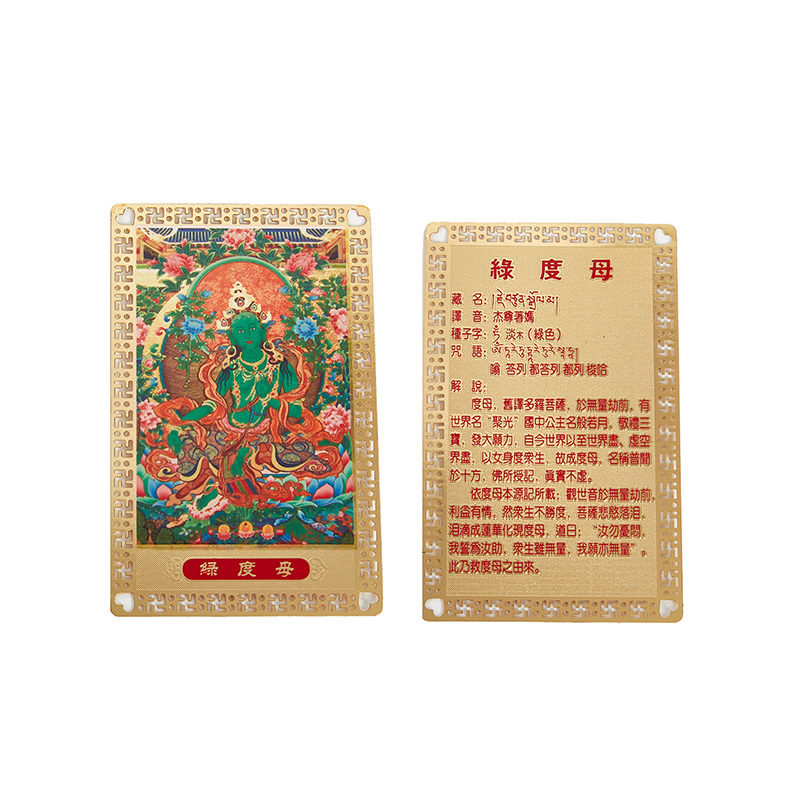 綠度母
綠度母
藏 名：།རྗེ་བཙུན་སྒྲོལ་མ།
譯 音：杰尊著嫣
種子字：淡木（綠色）
咒 語：ༀ་ཏཱ་རེ་ཏུཏྟཱ་རེ་ཏུ་རེ་སྭཱ་ཧཱ།
喻 答列 都答列 都列 梭哈
解 說：
度母，舊譯多羅菩薩，於無量劫前，有
世界名“聚光”國中公主名般若月，敬禮三
寶，發大願力，自今世界以至世界盡、虛空
界盡，以女身度衆生，故成度母，名稱普聞
於十方，佛所授記，眞實不虛。
依度母本源記所載；觀世音於無量劫前，
利益有情，然衆生不勝度，菩薩悲愍落泪，
泪滴成蓮華化現度母，道曰：“汝勿憂悶，
我誓爲汝助，衆生雖無量，我願亦無量”。
此乃救度母之由來。